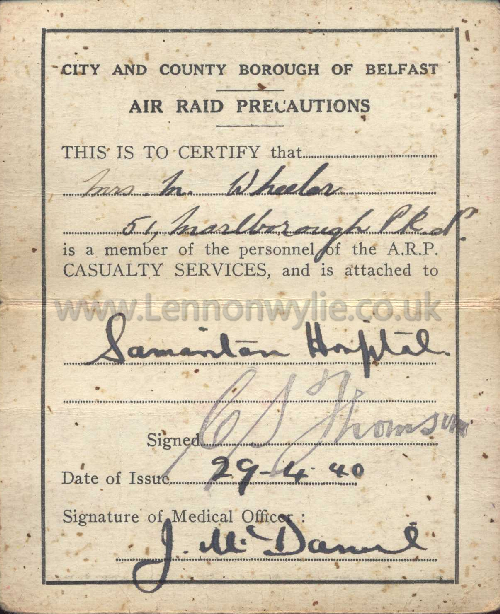 CITY AND COUNTY BOROUGH OF BELFAST
AIR RAID PRECAUTIONS
THIS IS TO CERTIFY that
Mrs. M. Wheeler
51, Marlborough Pk. N.
is a member of the personnel of the A.R.P.
CASUALTY SERVICES, and is attached to
www.Lennonwylie.co.uk
Samaritan Hospital.
Signed C S Thomson
Date of Issue 29-4-40
Signature of Medical Officer :
J. McDaniel